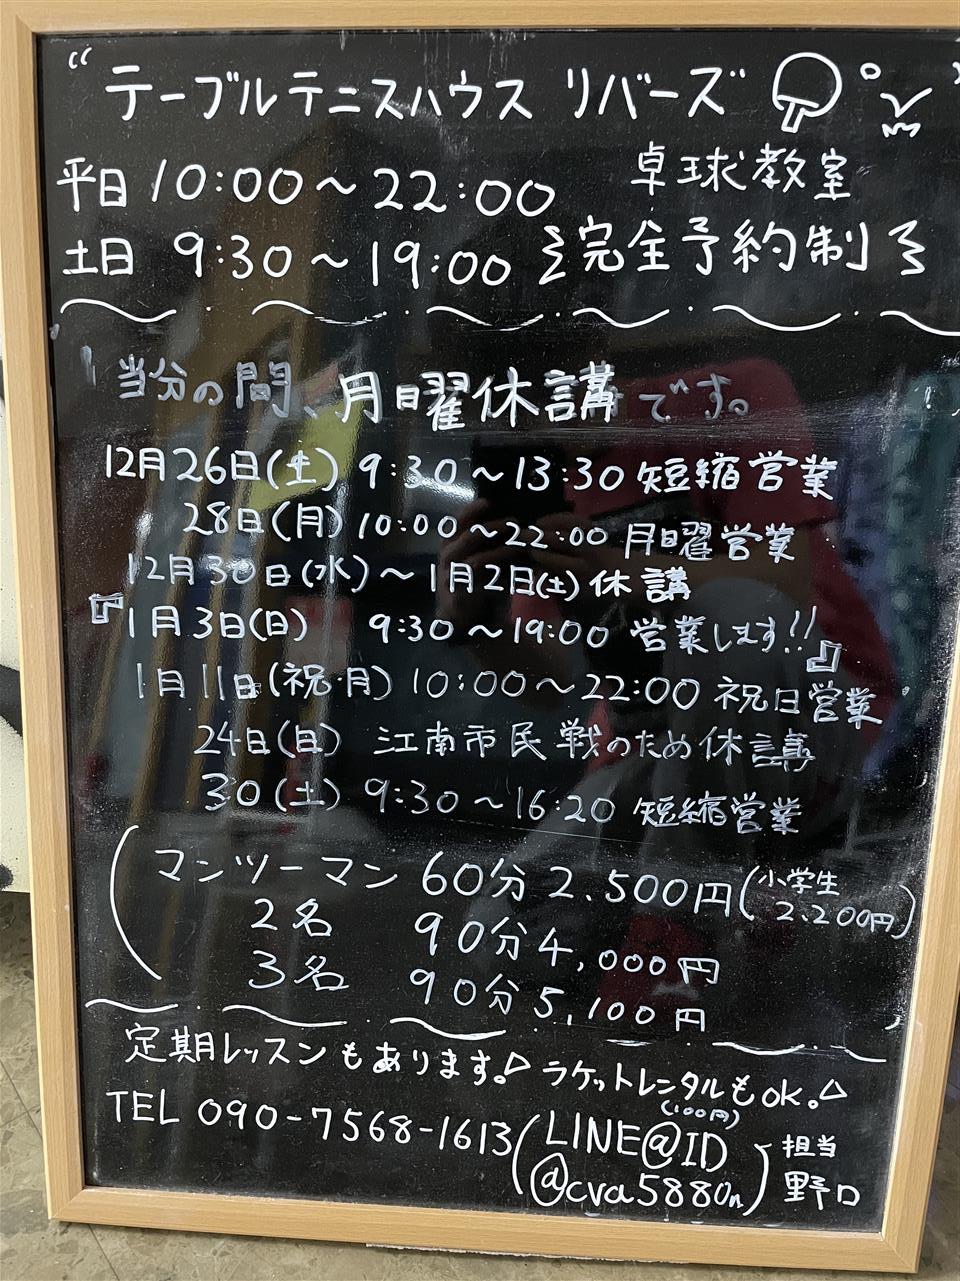 “テーブルテニスハウス リバーズ”
平日 10:00～22:00 卓球教室
土日 9:30～19:00 完全予約制
当分の間、月曜休講です。
12月26日(土) 9:30～13:30 短縮営業
28日(月) 10:00～22:00 月曜営業
12月30日(水)～1月2日(土)休講
『1月3日(日) 9:30～19:00 営業します!!』
1月11日(祝・月) 10:00～22:00 祝日営業
24日(日) 江南市民戦のため休講
30(土) 9:30～16:20 短縮営業
(マンツーマン 60分 2.500円(小学生 2.200円)
2名 90分 4,000円
3名 90分 5,100円
定期レッスンもあります。ラケットレンタルもOK。
(100円)
TEL 090-7568-1613(LINE@ID @cva5880n)担当 野口